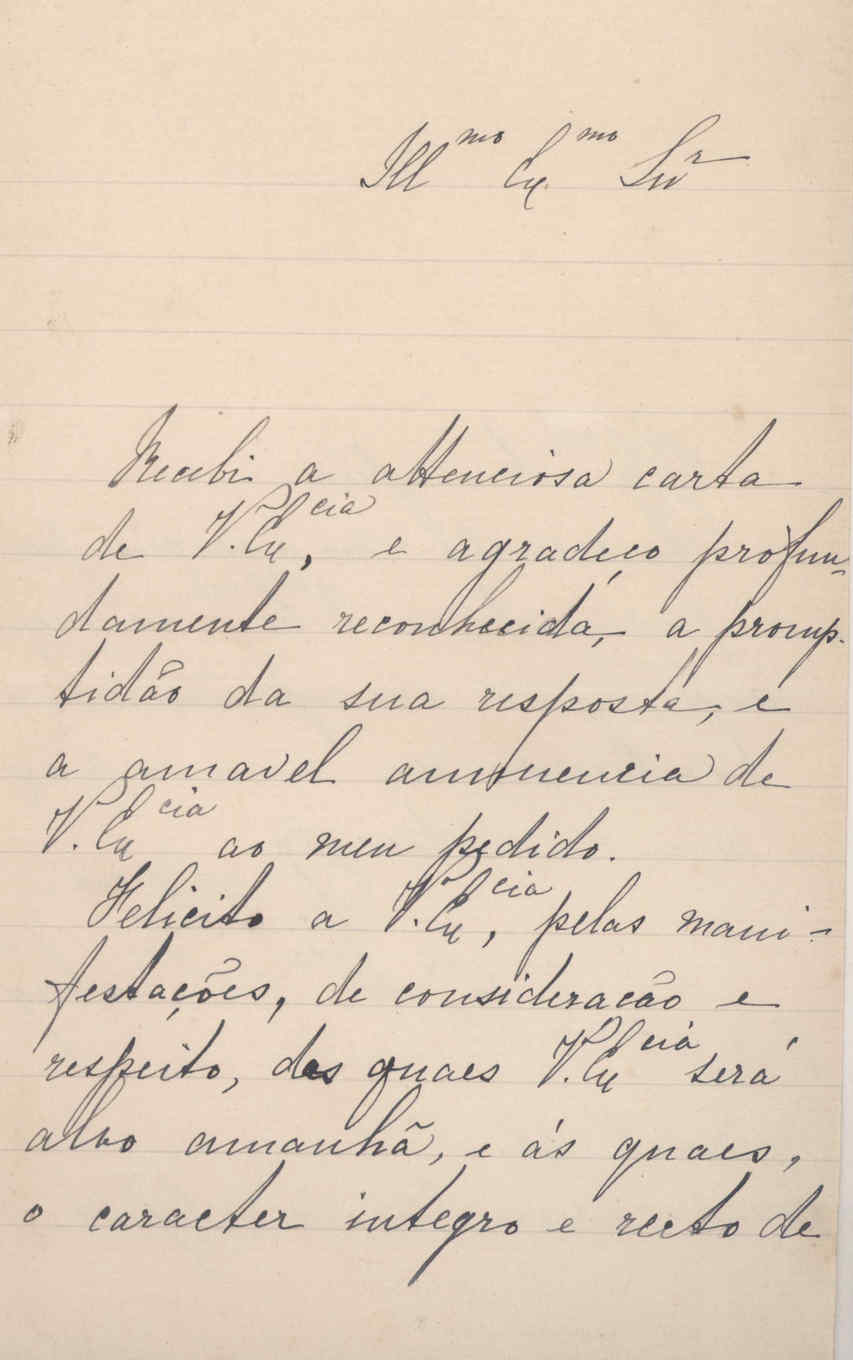 Ill.mo Ex.mo Snr
Recebi a attenciosa carta
de V. Ex.cia, e agradeço profun-
damente reconhecida, a promp-
tidão da sua resposta, e
a amavel annuencia de
V. Ex.cia ao meu pedido.
Felicito a V. Ex.cia, pelas mani-
festações, de consideracão e
respeito, das quaes V. Ex.cia será
alvo amanhã, e ás quaes,
o caracter integro e recto de